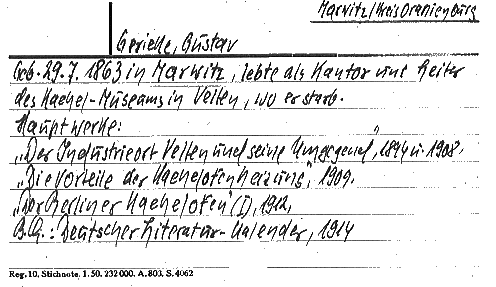 Marwitz/Kreis Oranienburg
Gericke, Gustav
Geb. 29.7. 1863 in Marwitz, lebte als Kantor und Leiter
des Kachel-Museums in Velten, wo er starb.
Hauptwerke:
„Der Industrieort Velten und seine Umgegend", 1894 u. 1908.
„Die Vorteile der Kachelofenheizung, 1909.
„Der Berliner Kachelofen" (I), 1912,
B.Q.: Deutscher Literatur-Kalender, 1914
Reg. 10, Stichnote, 1. 50. 232000. A. 803. S. 4062